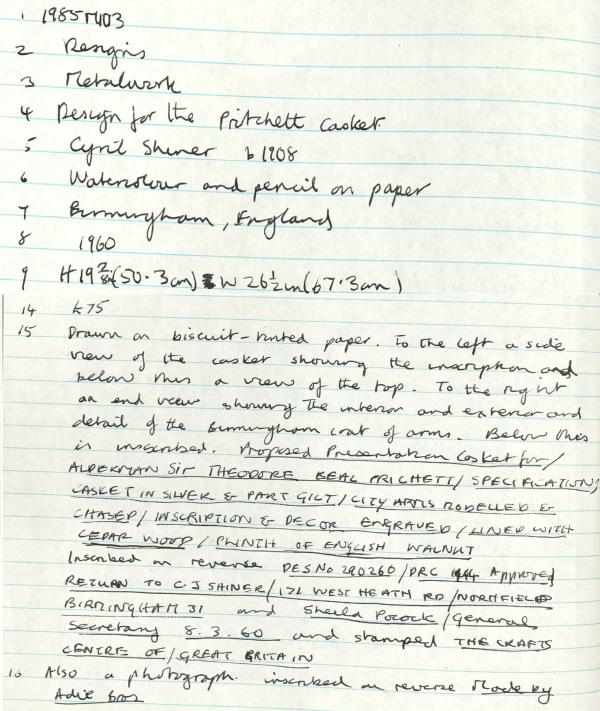 1 1985T403
2 Designs
3 Metalwork
4 Design for the Pritchett Casket.
5 Cyril Shiner b 1908
6 Watercolour and pencil on paper
7 Birmingham, England
8 1960
9 H 19 in (50.3 cm) W 26½ in (67.3 cm)
14 £75
15 Drawn on biscuit-tinted paper. To the left a side
view of the casket showing the inscription and
below this a view of the top. To the right
an end view showing the interior and exterior and
detail of the Birmingham coat of arms. Below this
is inscribed. Proposed Presentation Casket for/
ALDERMAN SIR THEODORE BEAL PRICHETT/ SPECIFICATION/
CASKET IN SILVER & PART GILT/CITY ARMS MODELLED &
CHASED/ INSCRIPTION & DECOR ENGRAVED/LINED WITH
CEDAR WOOD/ PLINTH OF ENGLISH WALNUT
Inscribed on reverse DES NO 280260/DRC Approved
RETURN TO C.J SHINER/ 171 WEST HEATH RD/NORTHFIELD
BIRMINGHAM 31 and Sheila Pocock/General
Secretary 8.3.60 and stamped THE CRAFTS
CENTRE OF/GREAT BRITAIN
16 Also a photograph. inscribed on reverse Made by
Adie Bros